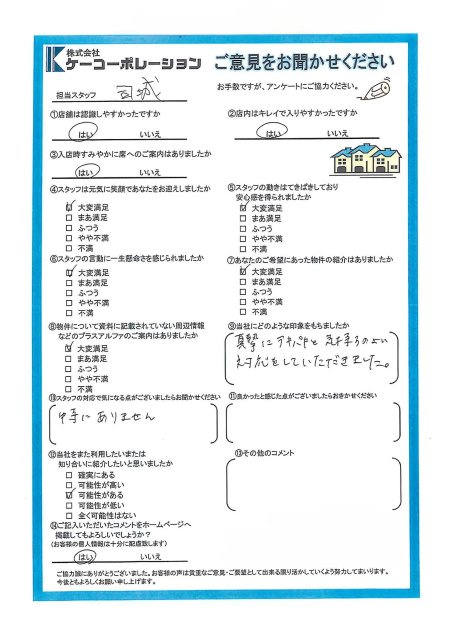 株式会社
ケーコーポレーション
ご意見をお聞かせください
担当スタッフ 司城
お手数ですが、アンケートにご協力ください。
①店舗は認識しやすかったですか
はい いいえ
②店内はキレイで入りやすかったですか
はい いいえ
③入店時すみやかに席へのご案内はありましたか
はい いいえ
④スタッフは元気に笑顔であなたをお迎えしましたか
大変満足
まあ満足
ふつう
やや不満
不満
⑤スタッフの動きはてきぱきしており
安心感を得られましたか
大変満足
まあ満足
ふつう
やや不満
不満
⑥スタッフの言動に一生懸命さを感じられましたか
大変満足
まあ満足
ふつう
やや不満
不満
⑦あなたのご希望にあった物件の紹介はありましたか
大変満足
まあ満足
ふつう
やや不満
不満
⑧物件について資料に記載されていない周辺情報
などのプラスアルファのご案内はありましたか
大変満足
まあ満足
ふつう
やや不満
不満
⑨当社にどのような印象をもちましたか
真摯にテキパキと気持ちのよい
対応をしていただきました。
⑩スタッフの対応で気になる点がございましたらお聞かせください
特にありません
⑪良かったと感じた点がございましたらおきかせください
⑫当社をまた利用したいまたは
知り合いに紹介したいと思いましたか
確実にある
可能性が高い
可能性がある
可能性が低い
全く可能性はない
⑬その他のコメント
⑭ご記入いただいたコメントをホームページへ
掲載してもよろしいでしょうか？
（お客様の個人情報は十分に配慮致します）
はい いいえ
ご協力誠にありがとうございました。お客様の声は貴重なご意見・ご要望として出来る限り活かしていくよう努力してまいります。
今後ともよろしくお願い申し上げます。